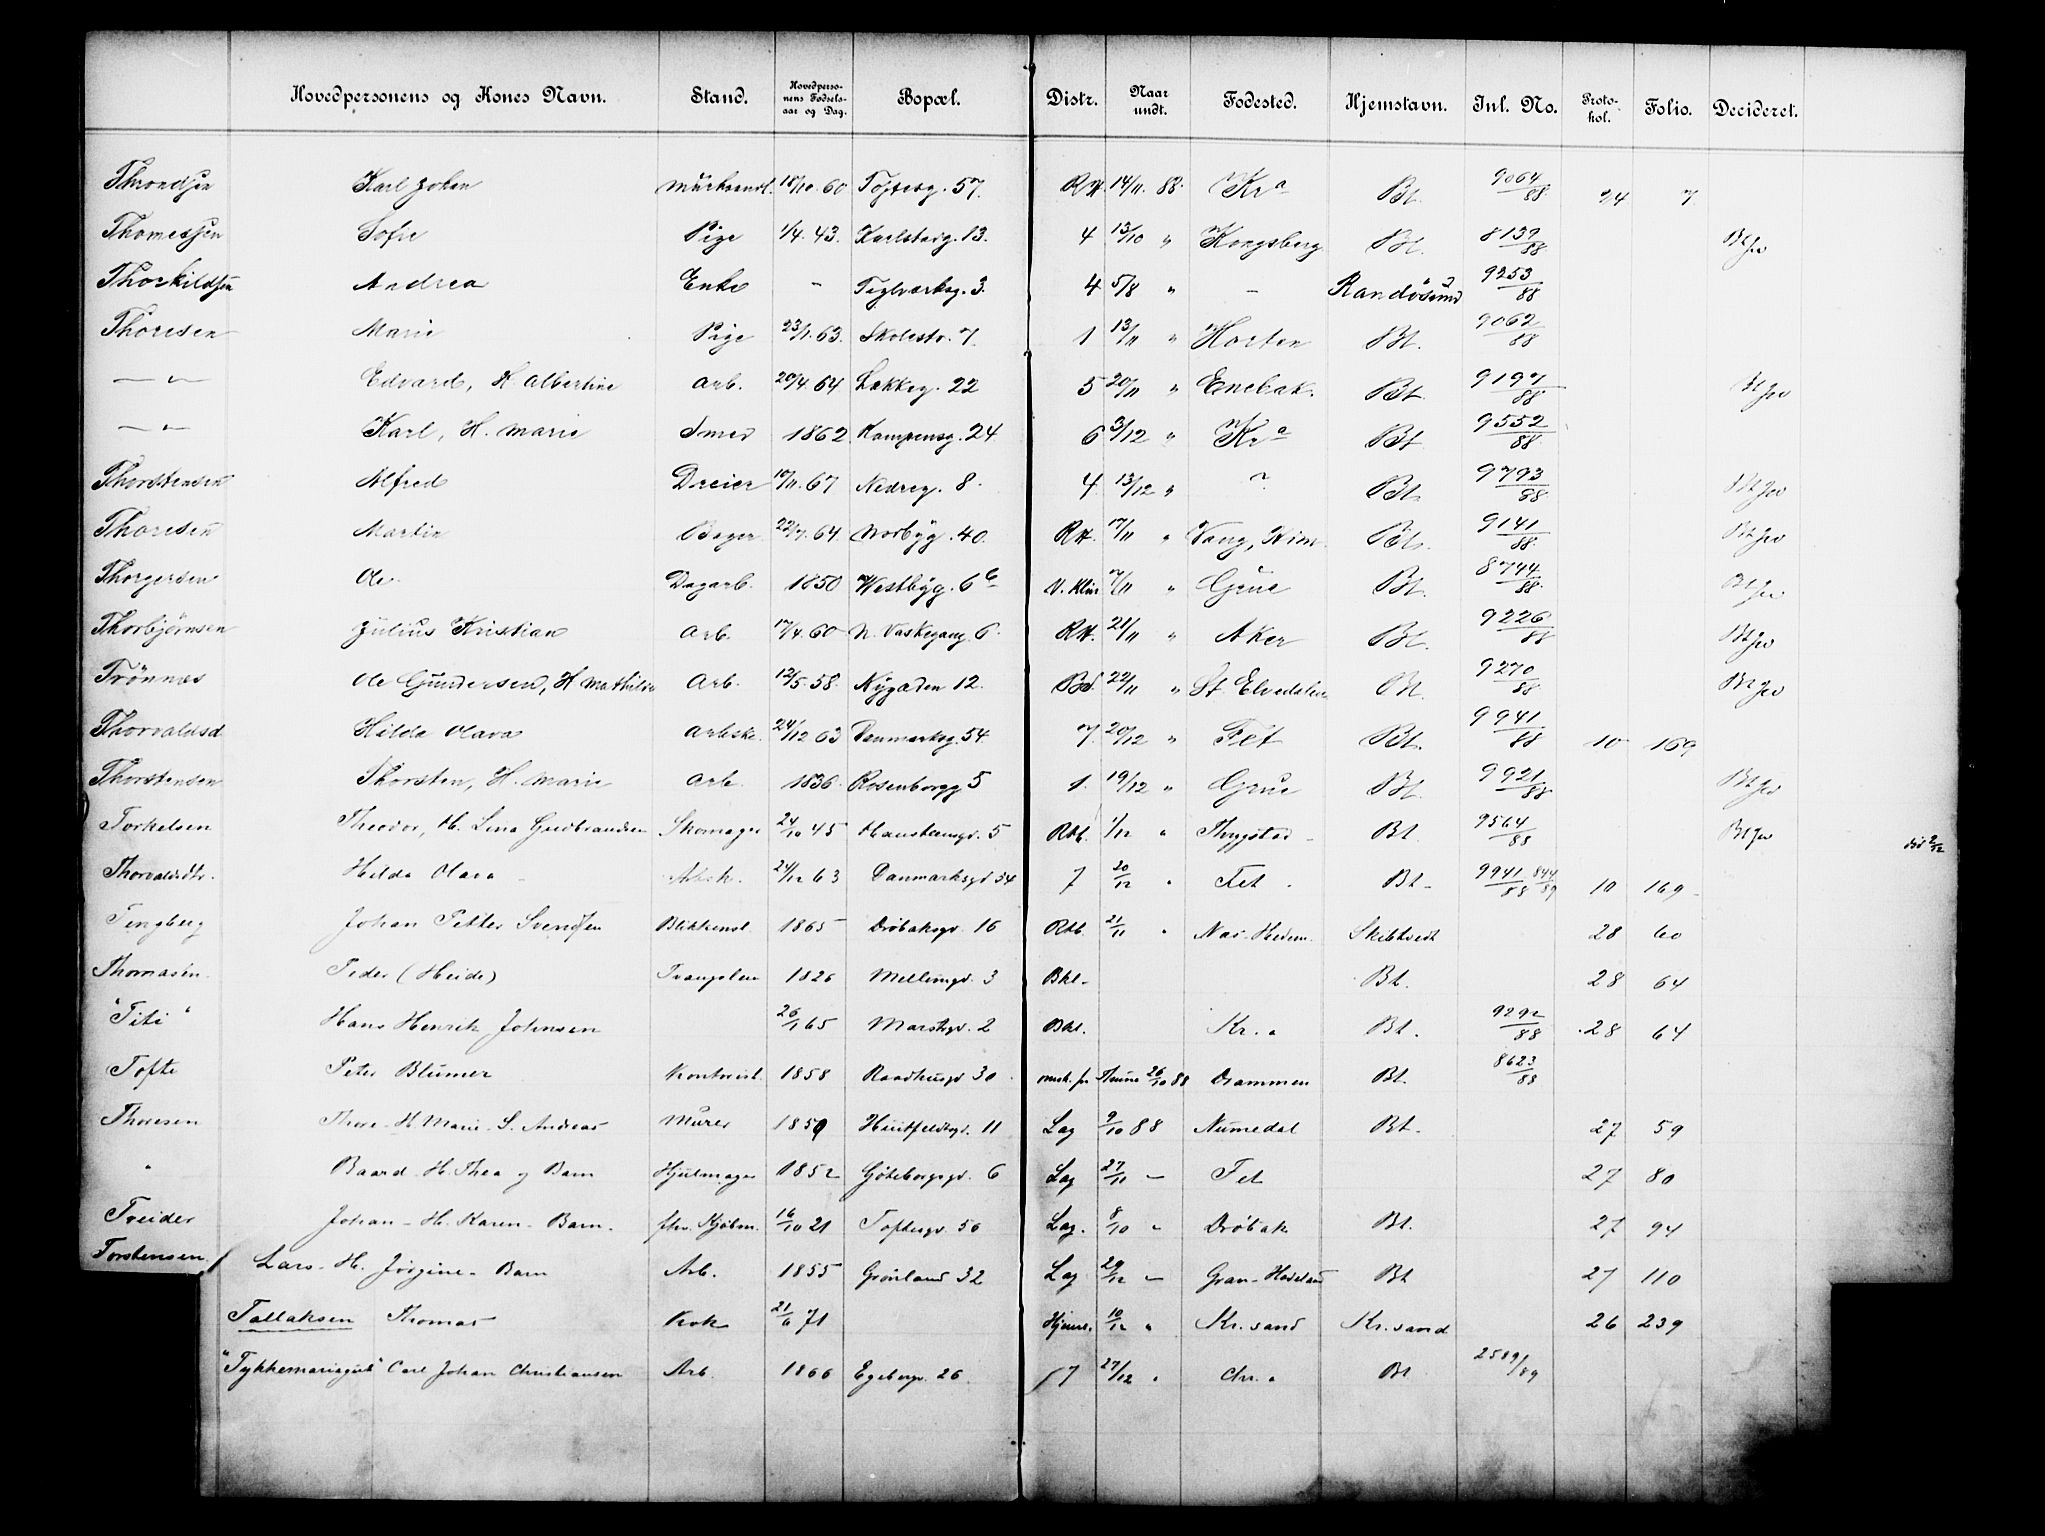 Hovedpersonens og Kones Navn. Stand. Hovedpersonens Fødselsaar og Dag. Bopæl. Distr. Naar undt. Fødested. Hjemstavn. Jnl. No. Protokol. Folio. Decideret.
Throndsen Karl Johan 60 Toftesg. 57. R.H. 14/11 88. Kra Bt. 9064/88 24 7
Thomessen Sofie Pige 1/4. 43. Karlstadg. 13. 4 13/10 " Kongsberg Bt. 8139/88 Bt Jev
Thorkildsen Andrea Enke - Teglverksg. 3. 4 5/8 " - Randøsund 9253/88
Thoresen Marie Pige 23/1. 63. Skolestr. 7. 1 13/11 " Horten Bt. 9062/88
— " — Edvard, H. Albertine Arb. 20/4. 64 Lakkeg. 22 5 20/11 " Enebak. Bt. 9197/88 Bt Jev
— " — Karl, H. Marie Smed 1862 Kampensg. 24 6 3/12 " Kra Bt 9552/88
Thorstensen Alfred Dreier 67 Nedreg. 8. 4 13/12 " ? Bt. 9793/88 Bt Jev
Thoresen Martin Bager 22/7. 64 Norbyg. 40. R.H. 17/11 " Vang, Bt. 9141/88 Bt Jev
Thorgersen Ole Dagarb. 1850 Westbyg. 6 b V. Klin 7/11 " Grue Bt. 8744/88 Bt Jev
Thorbjørnsen Julius Kristian Arb. 17/4. 60 N. Vaskegang 6. R.H. 21/11 " Aker Bt. 9226/88 Bt Jev
Trønnæs Ole Gundersen, H Mathilde Arb. 12/5. 58. Nygaden 12. Bd. 22/11 " St. Elvedalen Bt. 9270/88 Bt Jev
Thorvaldsd Hilda Olava Arbske. 24/12 63 Danmarksg. 54. 7. 20/12 " Fet Bt. 9941/88 10 169
Thorstensen Thorsten, H. Marie Arb. 1836. Rosenborgg. 5 1. 19/12 " Grue Bt. 9921/88 Bt Jev
Torkelsen Theodor, H. Lina Gudbrandsen Skomager 24/10 45 Hausmansgd. 5 Rtb. 1/12 " Thrygstad - Bt. 9564/88 Bt Jev død 2/12
Thorvaldsdtr. Hilda Olava - Arbsk. 24/12 63 Danmarksgd 54 7 20/12 " Fet . Bt - 9941/88 844/89 10 169 -
Tengberg Johan Petter Svendsen Blikkensl. 1865 Drøbaksgd. 16 Rtb. 21/11 " Næs - Hedem. Skibtvedt 28 60
Thomasen Peder (Heide) 1826 Mellemgd. 3 Bkl. Bt. 28 64
"Titi" Hans Henrik Johnsen 26/1 65 2 Bkl. Kr. a Bt. 9292/88 28 64
Tofte Peter Blumer Kontorist. 1858 Raadhusgd 30 26/10 88 Drammen Bt. 8623/88
Thoresen Thore - H Marie - S. Andreas Murer 1859 Huitfeldtsgd. 11 Lag 9/10 88 Numedal Bt. 27 59
" Baard - H. Thea og Barn Hjulmager 1852 Gøteborgsgd. 6 Lag 27/11 — Fet 27 80
Treider Johan - H. Karen - Barn. fhv. Kjøbm. 16/10 21 Toftesgd. 56 Lag. 8/10 " Drøbak Bt. 27 94
Torstensen Lars - H. Jørgine - Barn Arb. 1855 Grønland 32 Lag 29/12 — Gran - Hadeland Bt 27 110
Tallaksen Thomas Kok 21/6 71 Hjemst. 10/12 " Kr. sand Kr. sand 26 239
"Tykkemariasgut" Carl Johan Christiansen Arb. 1866 Egeberg. 26 7 27/12 " Chr. a Bt 2589/89